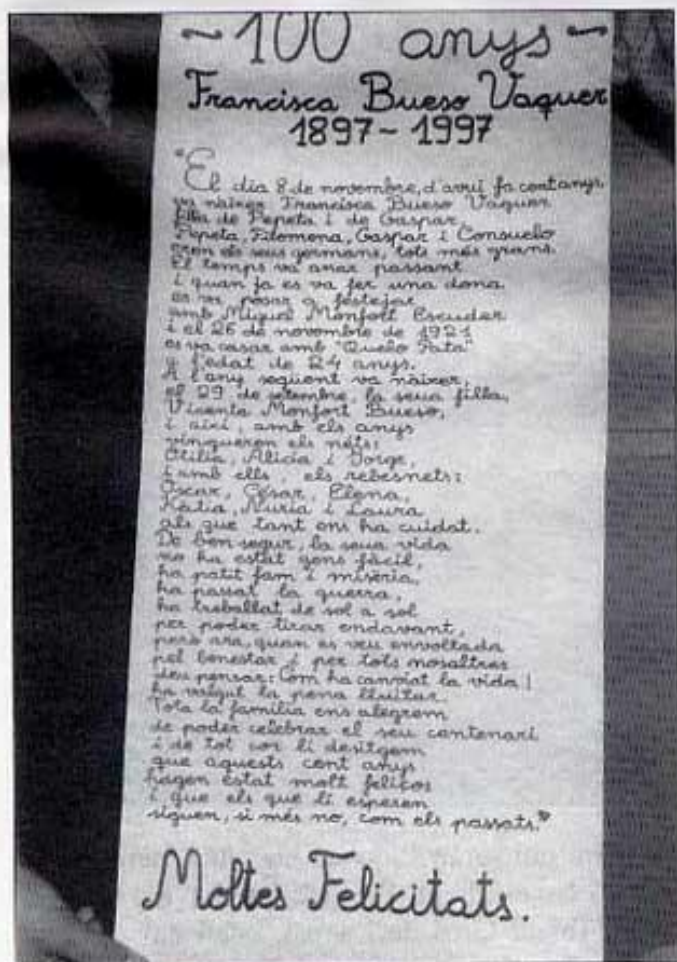 ~100 anys~
Francisca Bueso Vaquer
1897~1997
"El dia 8 de novembre, d'avui fa cent anys,
va nàixer Francisca Bueso Vaquer
filla de Pepeta i de Gaspar,
Pepeta, Filomena, Gaspar i Consuelo
eren els seus germans, tots més grans.
El temps va anar passant
i quan ja es va fer una dona
es va posar a festejar
amb Miguel Monfort Escuder
i el 26 de novembre de 1921
es va casar amb "Quelo Pata"
a l'edat de 24 anys.
A l'any següent va nàixer,
el 29 de setembre, la seua filla,
Vicenta Monfort Bueso,
i així, amb els anys
vingueren els néts:
Otilia, Alicia i Jorge,
i amb ells, els rebesnets:
Oscar, César, Elena,
Katia, Nuria i Laura
als que tant ens ha cuidat.
De ben segur, la seua vida
no ha estat gens fàcil,
ha patit fam i misèria,
ha passat la guerra,
ha treballat de sol a sol
per poder tirar endavant,
però ara, quan es veu envoltada
pel benestar i per tots nosaltres
deu pensar: Com ha canviat la vida!
ha valgut la pena lluitar.
Tota la família ens alegrem
de poder celebrar el seu centenari
i de tot cor li desitgem
que aquests cent anys
hagen estat molt feliços
i que els que li esperen
siguen, si més no, com els passats."
Moltes Felicitats.